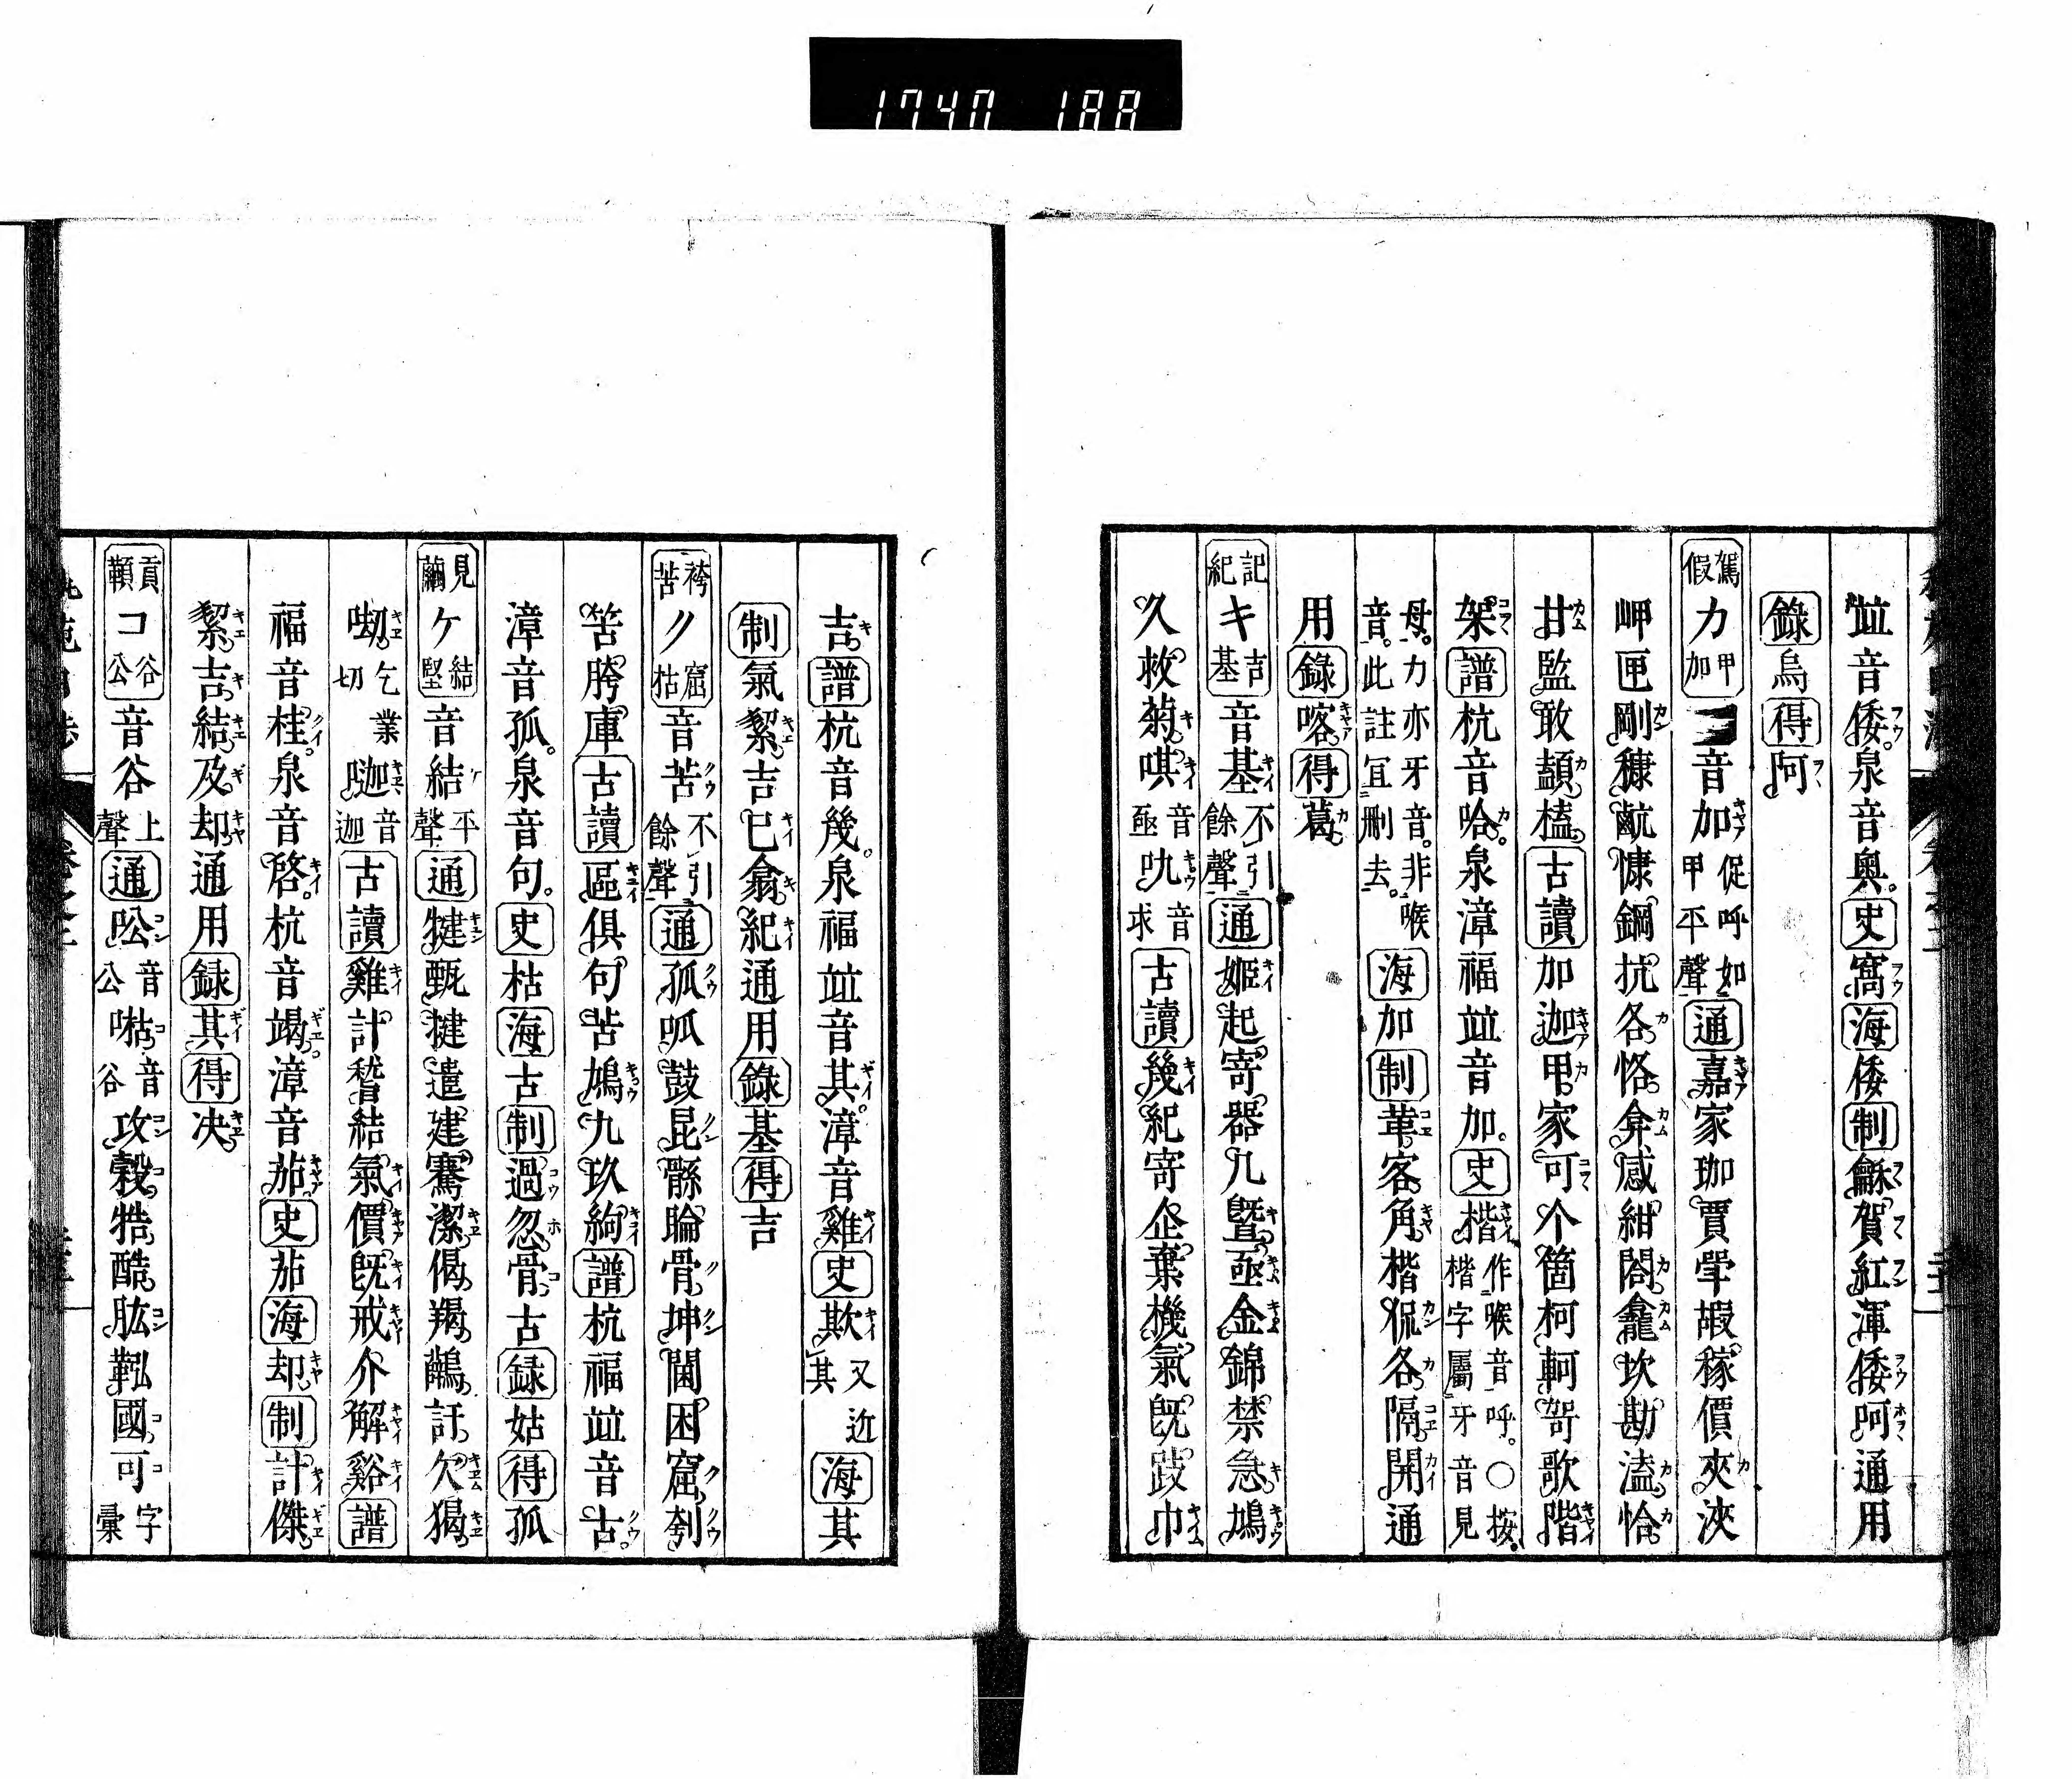 1740 188
竝音倭。泉音輿。史窩海倭制龢賀紅渾倭阿通用
錄烏得阿
駕假カ甲加音加促呼如甲平聲通嘉家珈賈斝嘏稼價夾浹
岬匣剛穅㼹慷鋼抗各恪弇感紺閤龕坎勘溘恰
甘監敢頡榼古讀加迦甲家可个箇柯軻哿歌階
架譜杭音哈。泉漳福竝音加。史楷作喉音呼。○按楷字屬牙音見
母。カ亦牙音。非喉音。此註宜刪去。海加制革客角楷侃各隔開通
用錄喀得葛
記紀キ吉基音基不引餘聲通姬起寄器几曁亟金錦禁急鳩
久救菊唭音亟叺音求古讀幾紀寄企棄機氣旣跂巾
吉譜杭音幾。泉福竝音其。漳音雞史欺又近其海其
制氣絜吉已翕紀通用錄基得吉
袴苦ク窟枯音苦不引餘聲通孤呱鼓昆骩睔骨坤閫困窟刳
筈胯庫古讀區俱句苦鳩九玖絢譜杭福竝音古。
漳音孤。泉音句。史枯海古制過忽骨古録姑得孤
見繭ケ結堅音結平聲通犍甄揵遣建騫潔偈羯鷊訐欠猲
㗸乞業切㘪音迦古讀雞計稽結氣價旣戒介解谿譜
福音桂。泉音啓。杭音竭漳音茄史茄海却制計傑
絜吉結及却通用録其得决
貢顜コ谷公音谷上聲通㕬音公㗖音谷攻穀牿酷肱鞃國可字彙